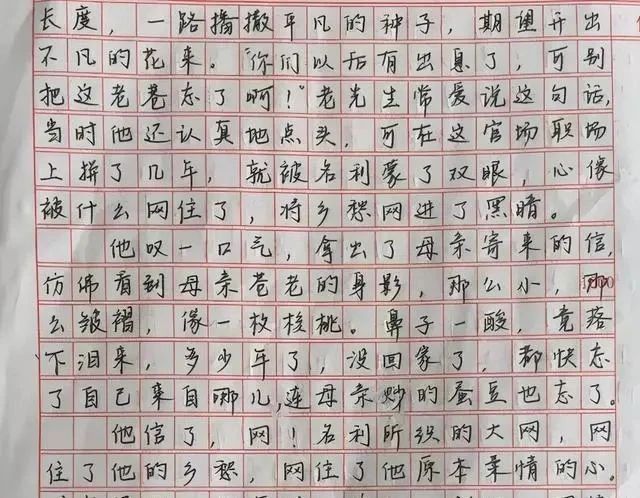 长度,一路播撒平凡的种子,期望开出
不凡的花来。“你们以后有出息了,可别
把这老巷忘了啊!”老先生常爱说这句话,
当时他还认真地点头,可在这官场职场
上拼了几年,就被名利蒙了双眼,心像
被什么网住了,将乡愁网进了黑暗。
他叹一口气,拿出了母亲寄来的信,
仿佛看到母亲苍老的身影,那么小,那
么皱褶,像一枚核桃。鼻子一酸,竟落
下泪来,多少年了,没回家了,都快忘
了自己来自哪儿,连母亲炒的蚕豆也忘了。
他信了,网!名利所织的大网,网
住了他的乡愁,网住了他原本柔情的心。